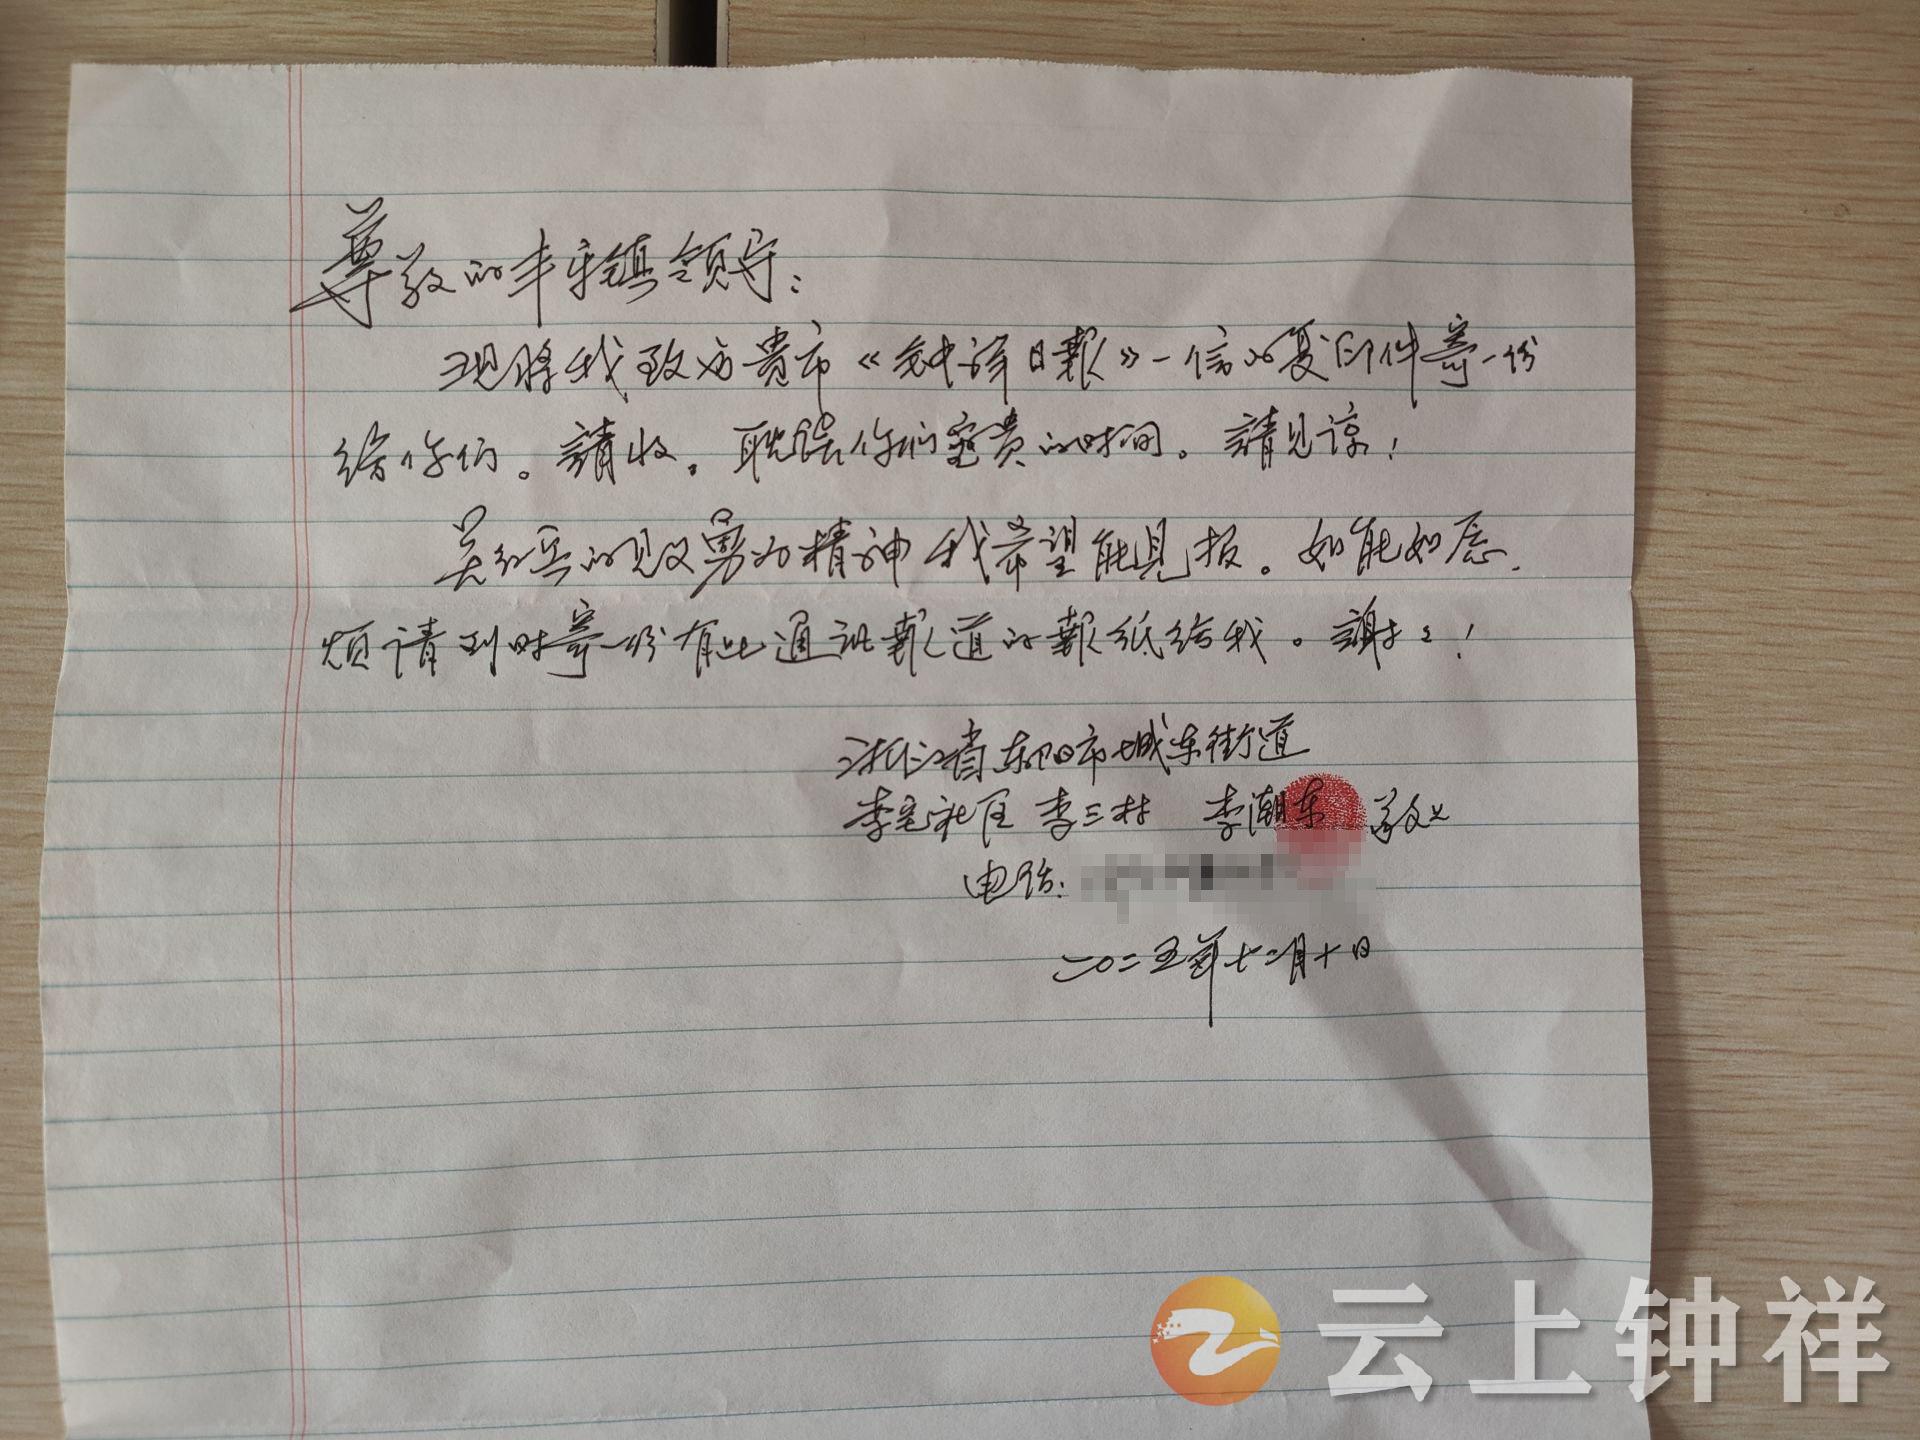 尊敬的丰乐镇领导：
现将我致为贵市《钟祥日報》一信的复印件寄一份
给你们。請收。耽误你们宝贵的时间。請见谅！
吴红兵的见义勇为精神我希望能見报。如能如愿.
烦请到时寄一份有此通讯報道的報纸给我。謝々！
浙江省东阳市城东街道
李宅社区李三村 李潮东 敬上
电话：
二〇二五年十二月十日
云上钟祥